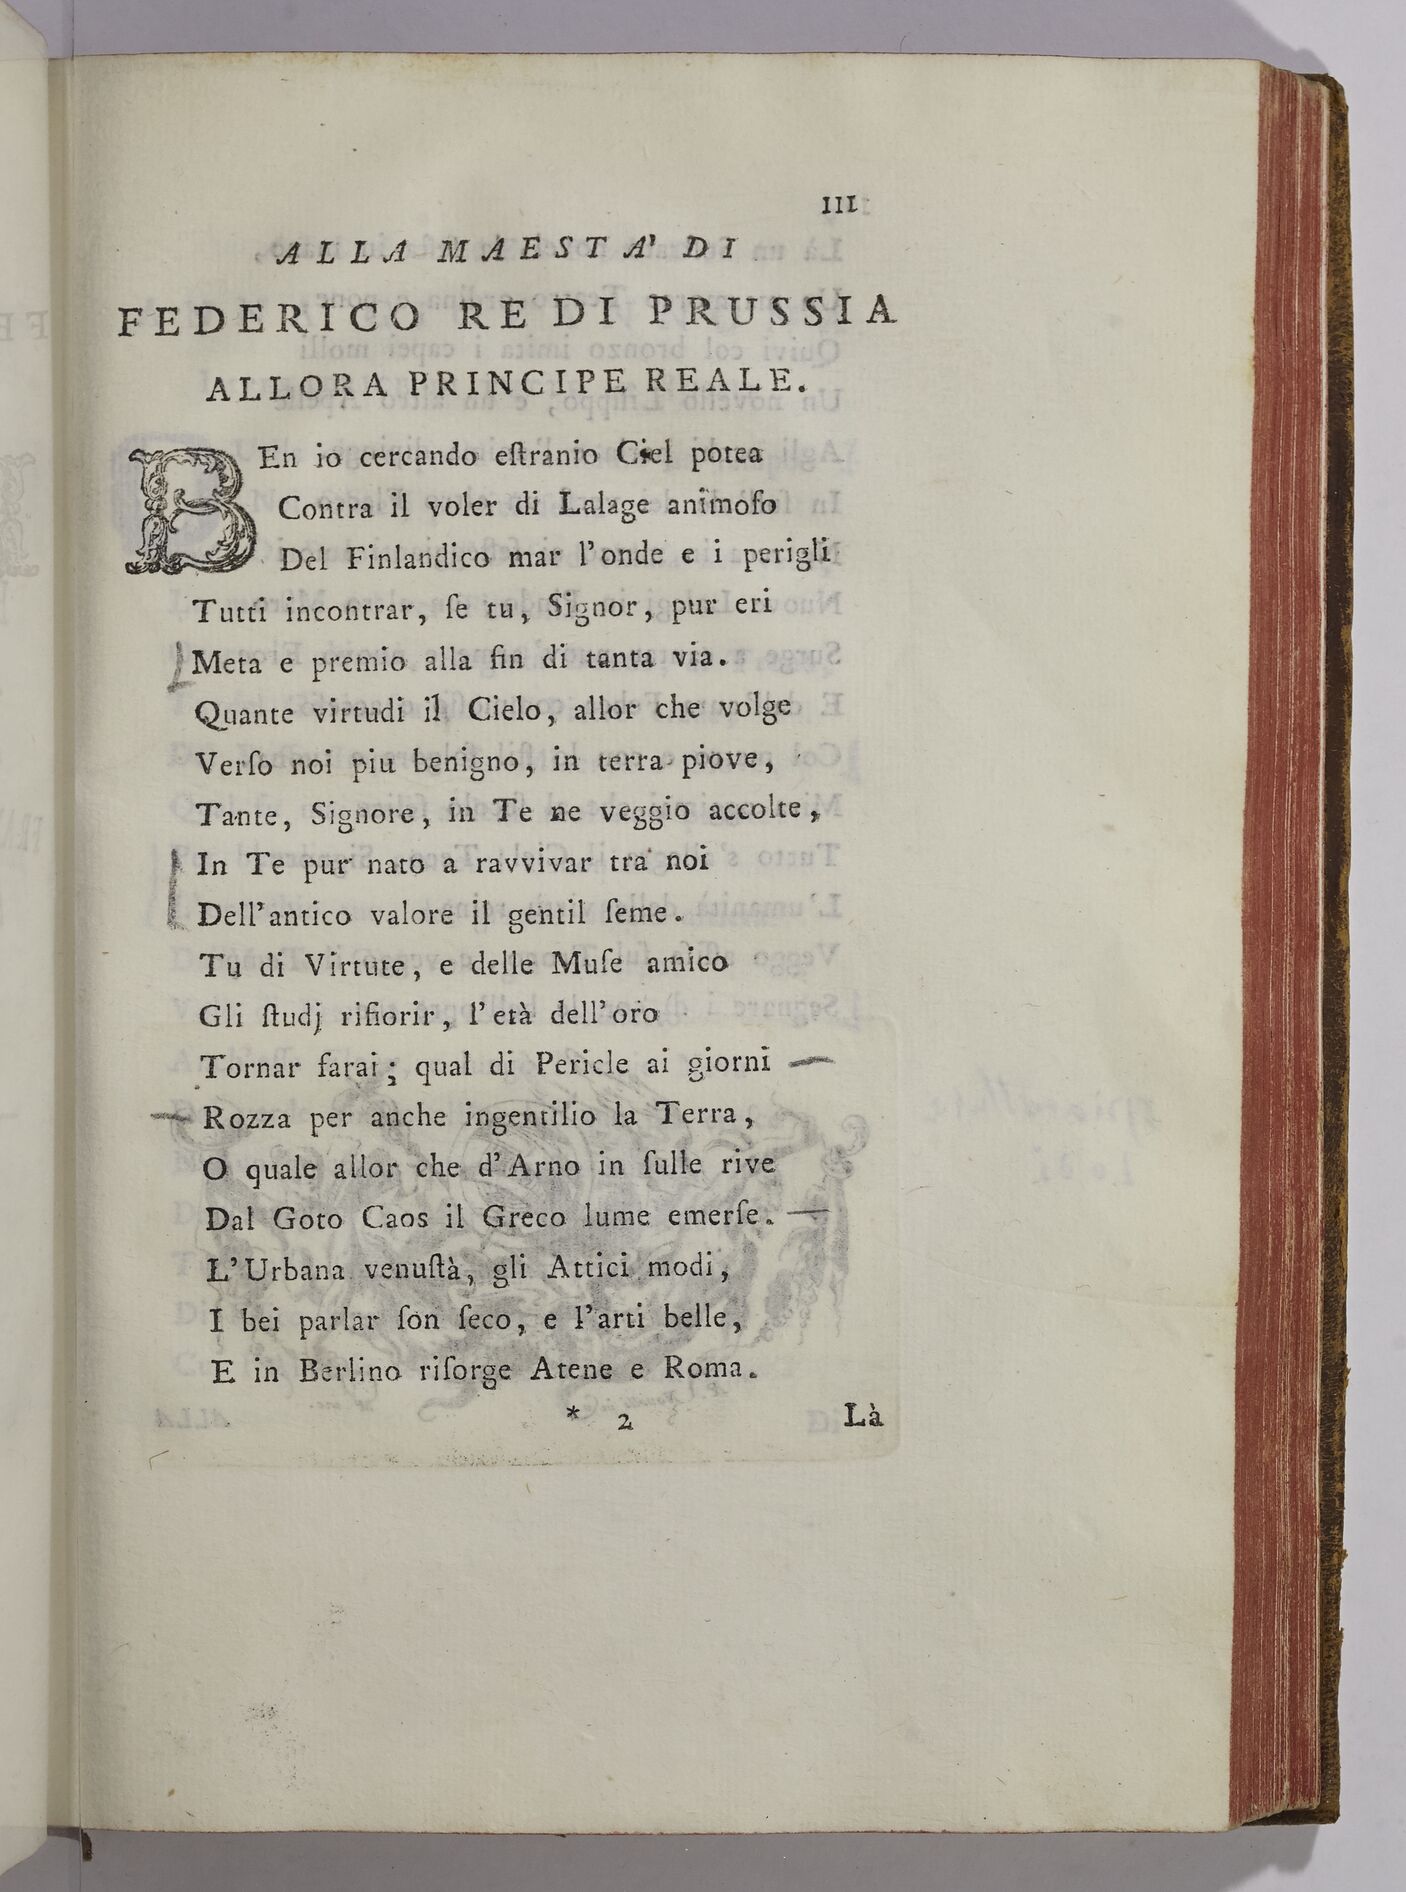 III
ALLA MAESTA' DI
FEDERICO RE DI PRUSSIA
ALLORA PRINCIPE REALE.
BEn io cercando eſtranio Ciel potea
Contra il voler di Lalage animoſo
Del Finlandico mar l'onde e i perigli
Tutti incontrar, ſe tu, Signor, pur eri
Meta e premio alla fin di tanta via.
Quante virtudi il Cielo, allor che volge
Verſo noi piu benigno, in terra piove,
Tante, Signore, in Te ne veggio accolte,
In Te pur nato a ravvivar tra noi
Dell'antico valore il gentil ſeme.
Tu di Virtute, e delle Muſe amico
Gli ſtudj rifiorir, l'età dell'oro
Tornar farai; qual di Pericle ai giorni
Rozza per anche ingentilio la Terra,
O quale allor che d'Arno in ſulle rive
Dal Goto Caos il Greco lume emerſe.
L'Urbana venuſtà, gli Attici modi,
I bei parlar ſon ſeco, e l'arti belle,
E in Berlino riſorge Atene e Roma.
* 2 Là